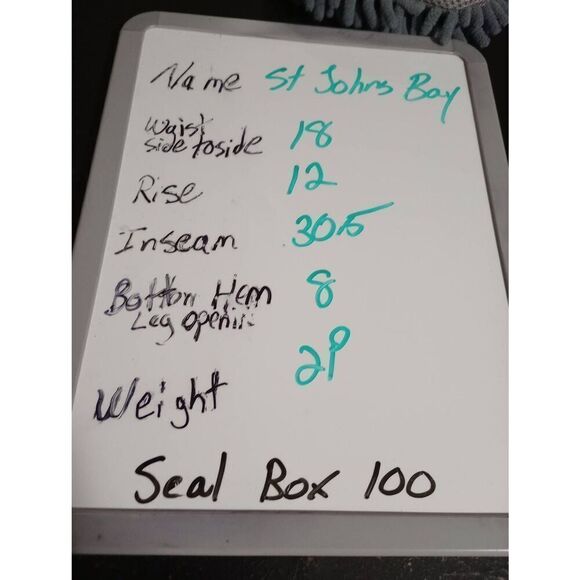 Name St Johns Bay
Waist
side to side 18
Rise 12
Inseam 30.5
Bottom Hem 8
Leg opening
Weight 2P
Seal Box 100